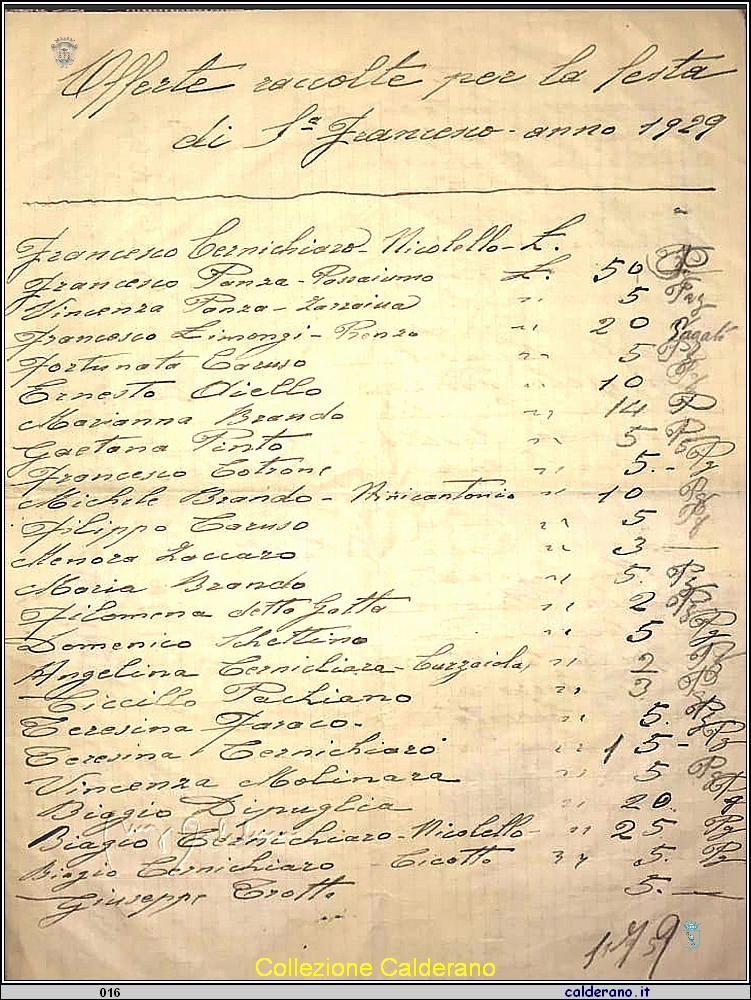 Offerte raccolte per la festa
di S.ⁿ Francesco - anno 1929
Francesco Cernichiaro - Nicolello - L. 50
Francesco Panza - Possaiumo L. 5 Pag
Vincenza Panza - Zarzaiua " 20 Pagato
Francesco Limongi - Renzo " 5 Pg
Fortunata Caruso " 10 Pg
Ernesto Aiello " 14 P
Marianna Brando " 5 Pg
Gaetana Pinto " 5.- Pg
Francesco Cotrone " 10 Pg
Michele Brando - " 5 Pg
Filippo Caruso " 3 —
Menora Zaccaro " 5. Pg
Maria Brando " 2 Pg
Filomena detta Gatta " 5 Pg
Domenico Schettino " 2 Pg
Angelina Cernichiara - Curzaiola, " 3 Pg
Ciccillo Pachiano " 5. Pg
Teresina Faraco - " 15 - Pg
Teresina Cernichiaro " 5 Pg
Vincenza Molinara " 20. Pg
Biaggio Dipuglia " 25 Pg
Biagio Cernichiaro - Nicolello - " 5. Pg
Biagio Cernichiaro - Cicotto " 5. —
Giuseppe Trotta
Collezione Calderano
016 calderano.it